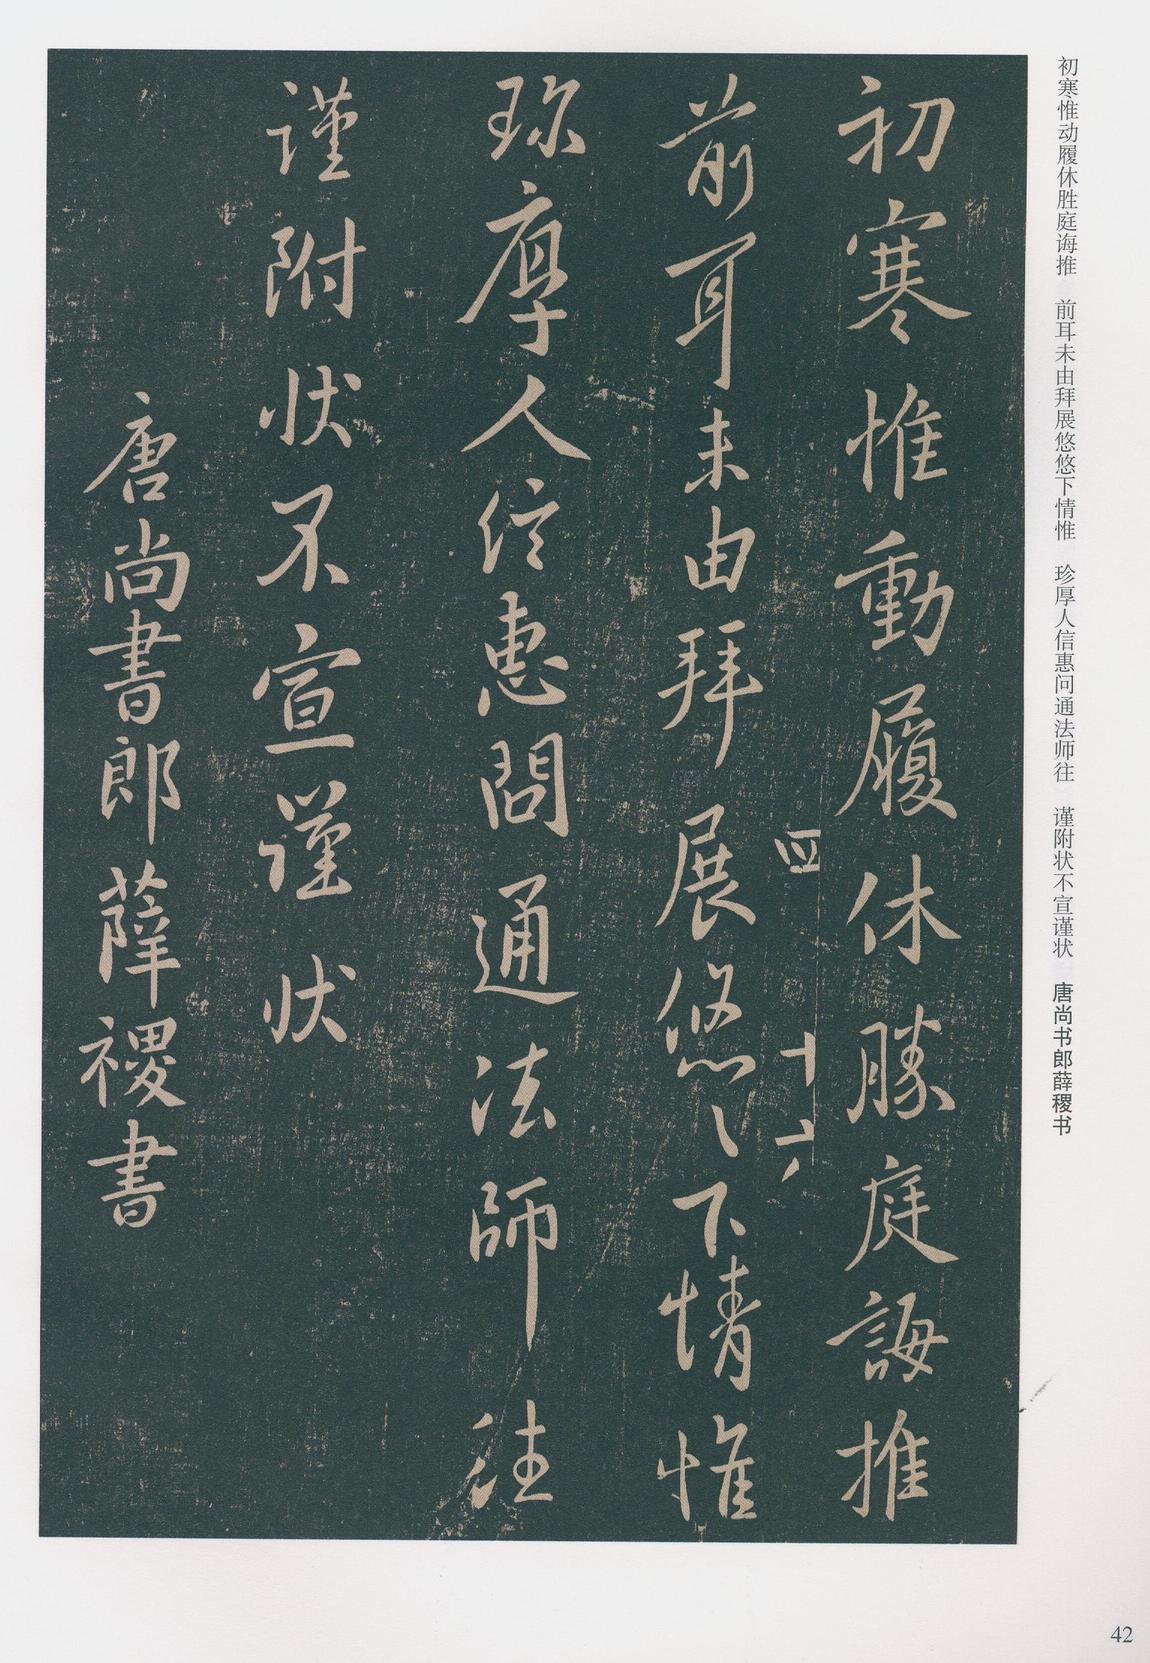 初寒惟动履休胜庭诲推　前耳未由拜展悠悠下情惟　珍厚人信惠问通法师往　谨附状不宣谨状　唐尚书郎薛稷书
初寒惟動履休勝庭誨推
四　十六
前耳未由拜展悠〻下情惟
珎厚人信惠問通法師往
謹附状不宣謹状
唐尚書郎薛稷書
42